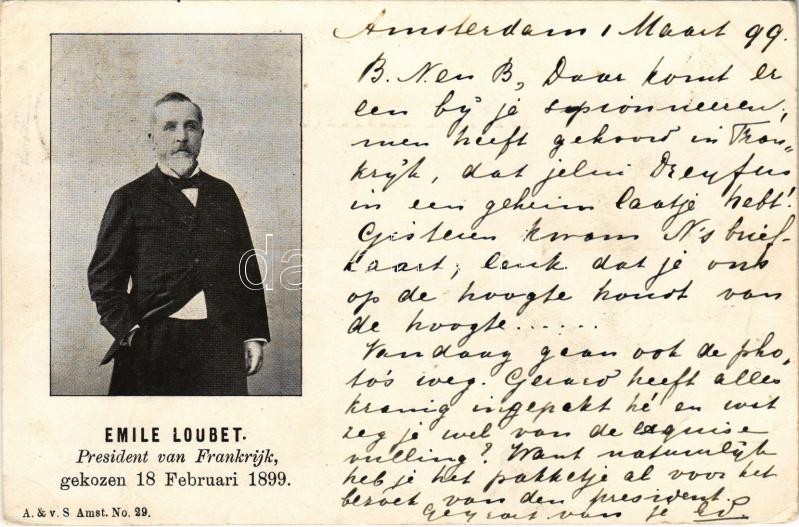 Amsterdam 1 Maart 99.
B. N. en B, Daar komt er
een bij je spionneeren,
men heeft gehoord in Fran„
krijk, dat jelui Dreyfus
in een geheim laatje hebt!
Gisteren kwam N's brief-
kaart, leuk dat je ons
op de hoogte houdt van
de hoogte......
Vandaag gaan ook de pho-
to's weg. Gerard heeft alles
kranig ingepakt hé en wat
zeg je wel van de exquise
vulling? Want natuurlijk
heb je het pakketje al voor het
bezoek van den president.
Gegroet van je Ed
EMILE LOUBET.
President van Frankrijk,
gekozen 18 Februari 1899.
A. & v. S Amst. No. 29.